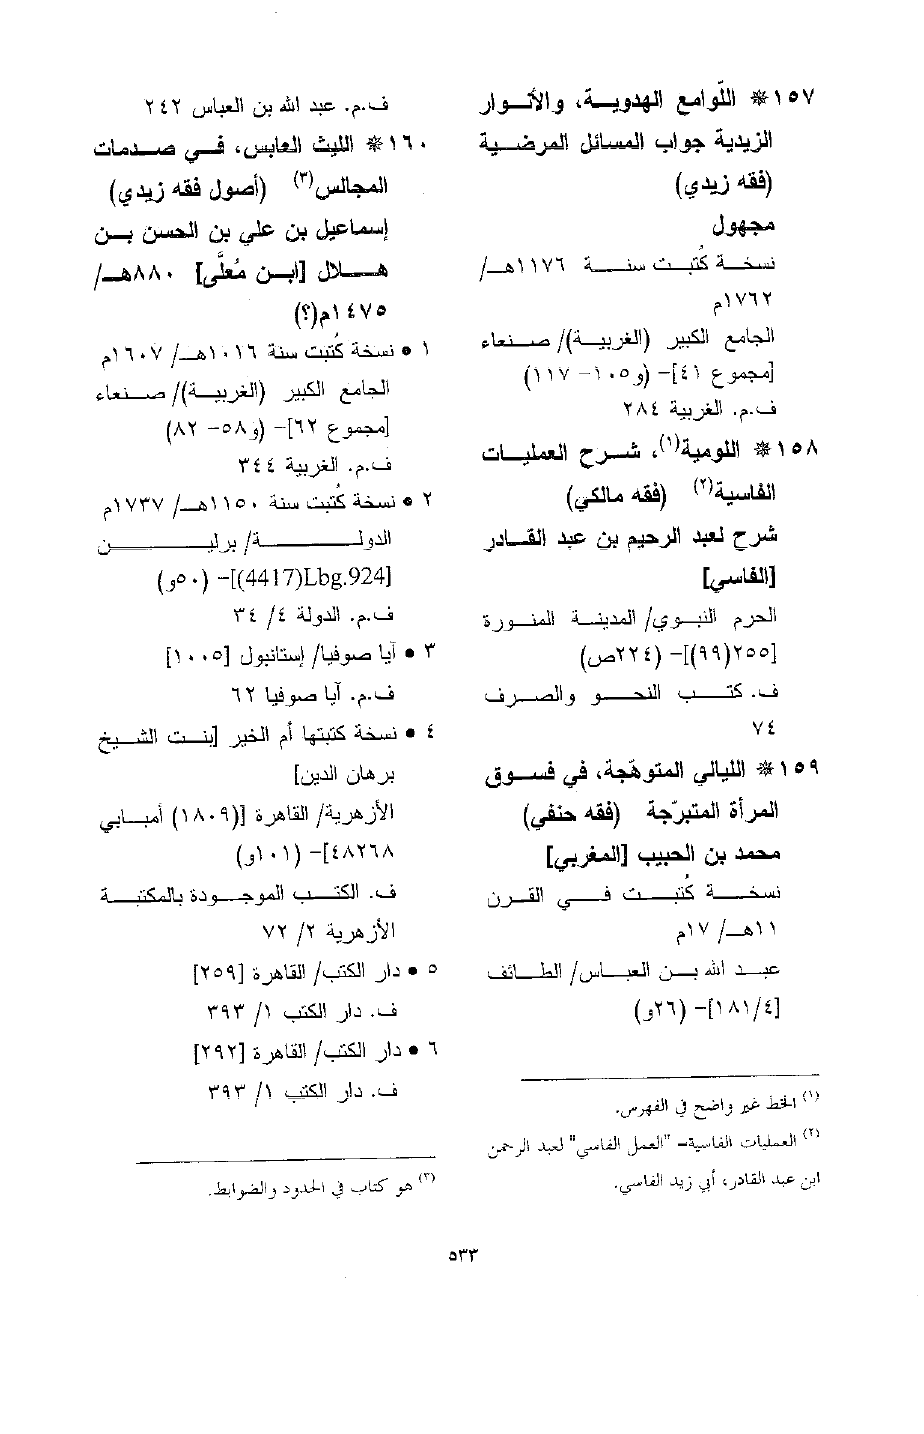 ١٥٧* اللّوامع الهدوية، والأنوار
الزيدية جواب المسائل المرضية
(فقه زيدي)
مجهول
نسخة كُتبت سنة ١١٧٦هـ/
١٧٦٢م
الجامع الكبير (الغربية)/ صنعاء
[مجموع ٤١]- (و١٠٥- ١١٧)
ف.م. الغربية ٢٨٤
١٥٨* اللومية(١)، شرح العمليات
الفاسية(٢) (فقه مالكي)
شرح لعبد الرحيم بن عبد القادر
[الفاسي]
الحرم النبوي/ المدينة المنورة
[٢٥٥(٩٩)]- (٢٢٤ص)
ف. كتب النحو والصرف
٧٤
١٥٩* الليالي المتوهّجة، في فسوق
المرأة المتبرّجة (فقه حنفي)
محمد بن الحبيب [المغربي]
نسخة كُتبت في القرن
١١هـ/ ١٧م
عبد الله بن العباس/ الطائف
[١٨١/٤]- (٢٦و)
(١) الخط غير واضح في الفهرس.
(٢) العمليات الفاسية- "العمل الفاسي" لعبد الرحمن
ابن عبد القادر، أبي زيد الفاسي.
ف.م. عبد الله بن العباس ٢٤٢
١٦٠* الليث العابس، في صدمات
المجالس(٣) (أصول فقه زيدي)
إسماعيل بن علي بن الحسن بن
هلال [ابن مُعلَّى] ٨٨٠هـ/
١٤٧٥م(؟)
١ • نسخة كُتبت سنة ١٠١٦هـ/ ١٦٠٧م
الجامع الكبير (الغربية)/ صنعاء
[مجموع ٦٢]- (و٥٨- ٨٢)
ف.م. الغربية ٣٤٤
٢ • نسخة كُتبت سنة ١١٥٠هـ/ ١٧٣٧م
الدولة/ برلين
[Lbg.924(4417)]- (٥٠و)
ف.م. الدولة ٤/ ٣٤
٣ • آيا صوفيا/ إستانبول [١٠٠٥]
ف.م. آيا صوفيا ٦٢
٤ • نسخة كتبتها أم الخير [بنت الشيخ
برهان الدين]
الأزهرية/ القاهرة [(١٨٠٩) أمبابي
٤٨٢٦٨]- (١٠١و)
ف. الكتب الموجودة بالمكتبة
الأزهرية ٢/ ٧٢
٥ • دار الكتب/ القاهرة [٢٥٩]
ف. دار الكتب ١/ ٣٩٣
٦ • دار الكتب/ القاهرة [٢٩٢]
ف. دار الكتب ١/ ٣٩٣
(٣) هو كتاب في الحدود والضوابط.
٥٣٣